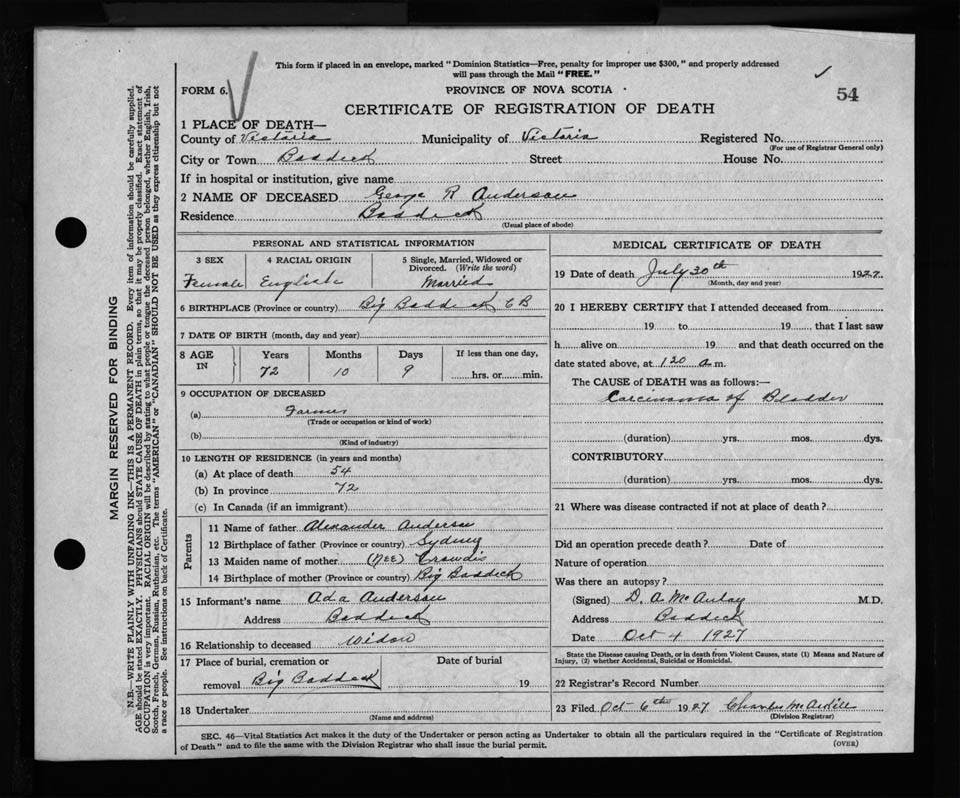 This form if placed in an envelope, marked "Dominion Statistics—Free, penalty for improper use $300," and properly addressed
will pass through the Mail "FREE."
FORM 6.
PROVINCE OF NOVA SCOTIA
54
CERTIFICATE OF REGISTRATION OF DEATH
1 PLACE OF DEATH—
County of Victoria Municipality of Victoria Registered No.
(For use of Registrar General only)
City or Town Baddeck Street House No.
If in hospital or institution, give name
2 NAME OF DECEASED George R Anderson
Residence Baddeck
(Usual place of abode)
PERSONAL AND STATISTICAL INFORMATION
3 SEX 4 RACIAL ORIGIN 5 Single, Married, Widowed or
Divorced. (Write the word)
Female English Married
6 BIRTHPLACE (Province or country) Big Baddeck CB
7 DATE OF BIRTH (month, day and year)
8 AGE Years Months Days If less than one day,
IN
72 10 9 hrs. or min.
9 OCCUPATION OF DECEASED
(a) Farmer
(Trade or occupation or kind of work)
(b)
(Kind of industry)
10 LENGTH OF RESIDENCE (in years and months)
(a) At place of death 54
(b) In province 72
(c) In Canada (if an immigrant)
Parents
11 Name of father Alexander Anderson
12 Birthplace of father (Province or country) Sydney
13 Maiden name of mother (Nee) Crowdis
14 Birthplace of mother (Province or country) Big Baddeck
15 Informant's name Ada Anderson
Address Baddeck
16 Relationship to deceased Widow
17 Place of burial, cremation or Date of burial
removal Big Baddeck 19
18 Undertaker
(Name and address)
MEDICAL CERTIFICATE OF DEATH
19 Date of death July 30th 1927.
(Month, day and year)
20 I HEREBY CERTIFY that I attended deceased from
19 to 19 that I last saw
h alive on 19 and that death occurred on the
date stated above, at 1 20 a.m.
The CAUSE of DEATH was as follows:—
Carcinoma of Bladder
(duration) yrs. mos. dys.
CONTRIBUTORY
(duration) yrs. mos. dys.
21 Where was disease contracted if not at place of death?
Did an operation precede death? Date of
Nature of operation
Was there an autopsy?
(Signed) D. A. McAulay M.D.
Address Baddeck
Date Oct 4 1927
State the Disease causing Death, or in death from Violent Causes, state (1) Means and Nature of
Injury, (2) whether Accidental, Suicidal or Homicidal.
22 Registrar's Record Number
23 Filed Oct 6th 1927 Charles
(Division Registrar)
SEC. 46—Vital Statistics Act makes it the duty of the Undertaker or person acting as Undertaker to obtain all the particulars required in the "Certificate of Registration
of Death" and to file the same with the Division Registrar who shall issue the burial permit.
(OVER)
MARGIN RESERVED FOR BINDING
N.B.—WRITE PLAINLY WITH UNFADING INK—THIS IS A PERMANENT RECORD. Every item of information should be carefully supplied.
AGE should be stated EXACTLY. PHYSICIANS should STATE CAUSE OF DEATH in plain terms, so that it may be properly classified. Exact statement of
OCCUPATION is very important. RACIAL ORIGIN will be described by stating to what people or tongue the deceased person belonged, whether English, Irish,
Scotch, French, German, Russian, Ruthenian, etc. The terms "AMERICAN" or "CANADIAN" SHOULD NOT BE USED as they express citizenship but not
a race or people. See instructions on back of Certificate.